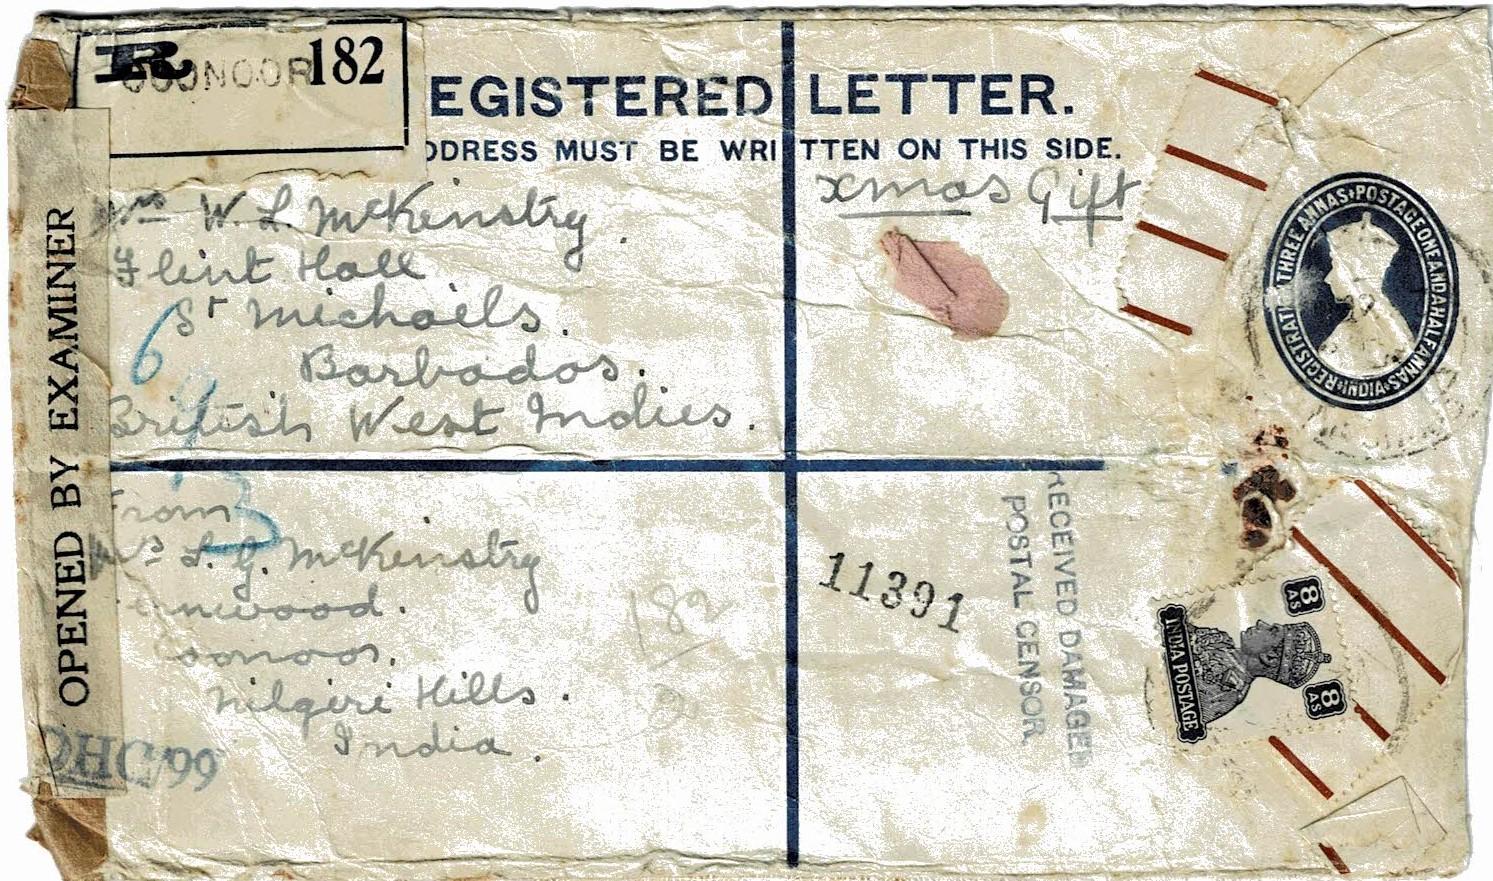 R COONOOR 182
EGISTERED LETTER.
DDRESS MUST BE WRITTEN ON THIS SIDE.
Xmas Gift
Mrs W. L. McKinstry
Flint Hall
St Michaels.
Barbados.
British West Indies.
From
Mrs L. G. McKinstry
ernwood.
Coonoor.
Nilgiri Hills.
India.
6
9
3
182
11391
RECEIVED DAMAGED
POSTAL CENSOR
OPENED BY EXAMINER
DHC/66
REGISTRATION THREE ANNAS POSTAGE ONE AND A HALF ANNAS INDIA
8 AS
INDIA POSTAGE
8 AS